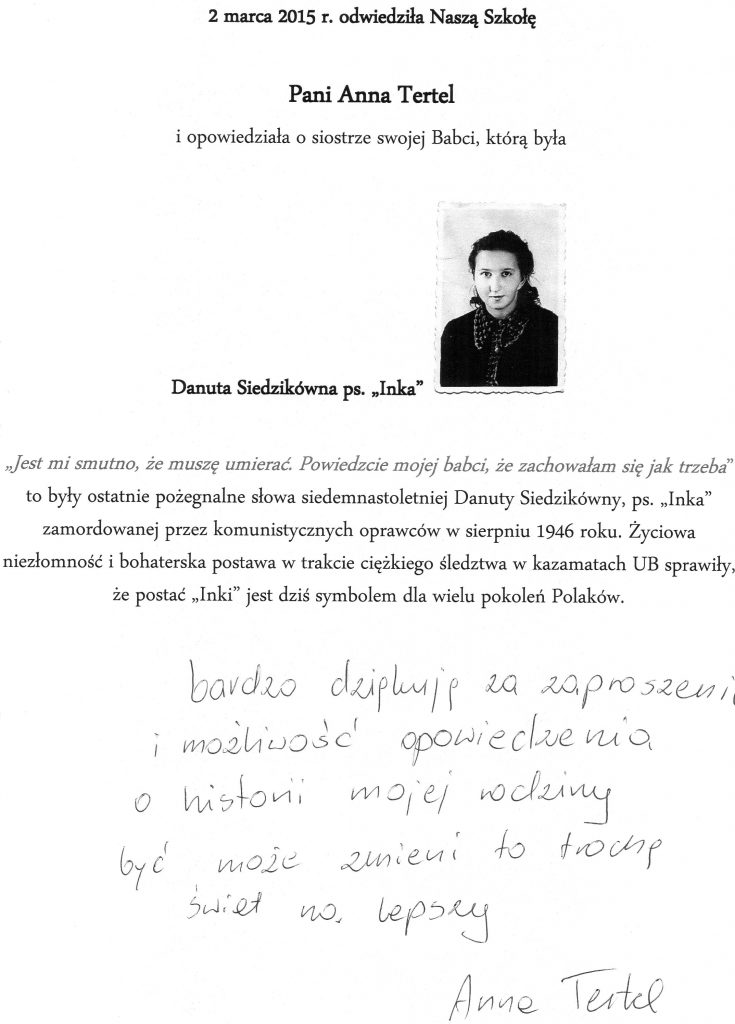 2 marca 2015 r. odwiedziła Naszą Szkołę
Pani Anna Tertel
i opowiedziała o siostrze swojej Babci, którą była
Danuta Siedzikówna ps. „Inka”
„Jest mi smutno, że muszę umierać. Powiedzcie mojej babci, że zachowałam się jak trzeba”
to były ostatnie pożegnalne słowa siedemnastoletniej Danuty Siedzikówny, ps. „Inka”
zamordowanej przez komunistycznych oprawców w sierpniu 1946 roku. Życiowa
niezłomność i bohaterska postawa w trakcie ciężkiego śledztwa w kazamatach UB sprawiły,
że postać „Inki” jest dziś symbolem dla wielu pokoleń Polaków.
bardzo dziękuję za zaproszeni
i możliwość opowiedzenia
o historii mojej rodziny
być może zmieni to trochę
świat na lepszy
Anna Tertel